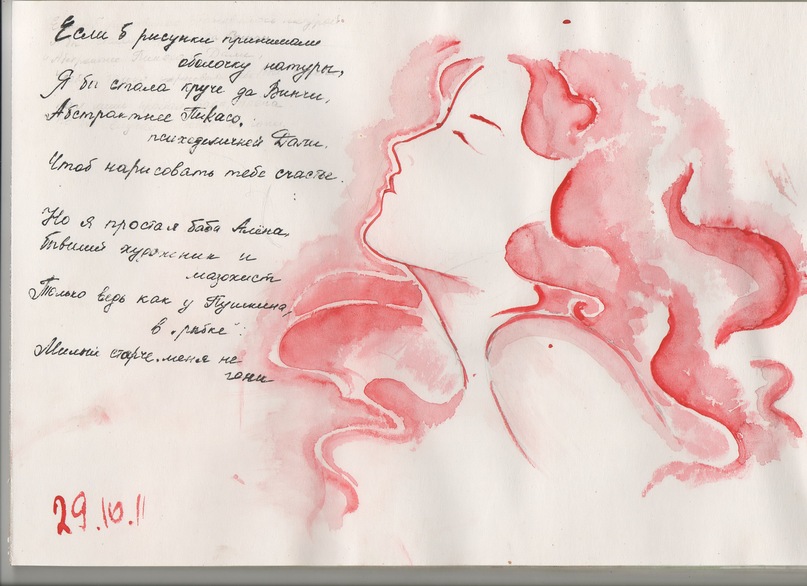 Если б рисунки принимали
оболочку натуры,
Я бы стала круче да Винчи,
Абстрактнее Пикасо,
психоделичней Дали.
Чтоб нарисовать тебе счастье.
Но я простая баба Алёна,
бывший художник и
мазохист
Только ведь как у Пушкина,
в "рыбке":
Милый старче, меня не
гони
29.10.11